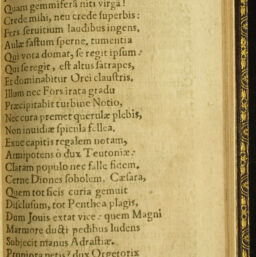 Quam gemmiferâ niti virgâ!
Crede mihi, neu crede superbis:
Fers seruitium laudibus ingens,
Aulæ fastum sperne, tumentia
Qui vota domat, se regit ipsum:
Qui se regit, est altus satrapes,
Et dominabitur Orci claustris,
Illum nec Fors irata gradu
Præcipitabit turbine Notio,
Nec cura premet querulæ plebis,
Non inuidiæ spicula fellea,
Exue capitis regalem notam,
Armipotens ô dux Teutoniæ:
Claram populo nec falle fidem,
Cerne Diones sobolem, Cæsara,
Quem tot sicis curia gemuit
Disclusum, tot Penthea plagis,
Dum Jouis extat vice: quem Magni
Marmore ducti pedibus ludens
Subjecit manus Adrastiæ.
petis? dux Orgetorix